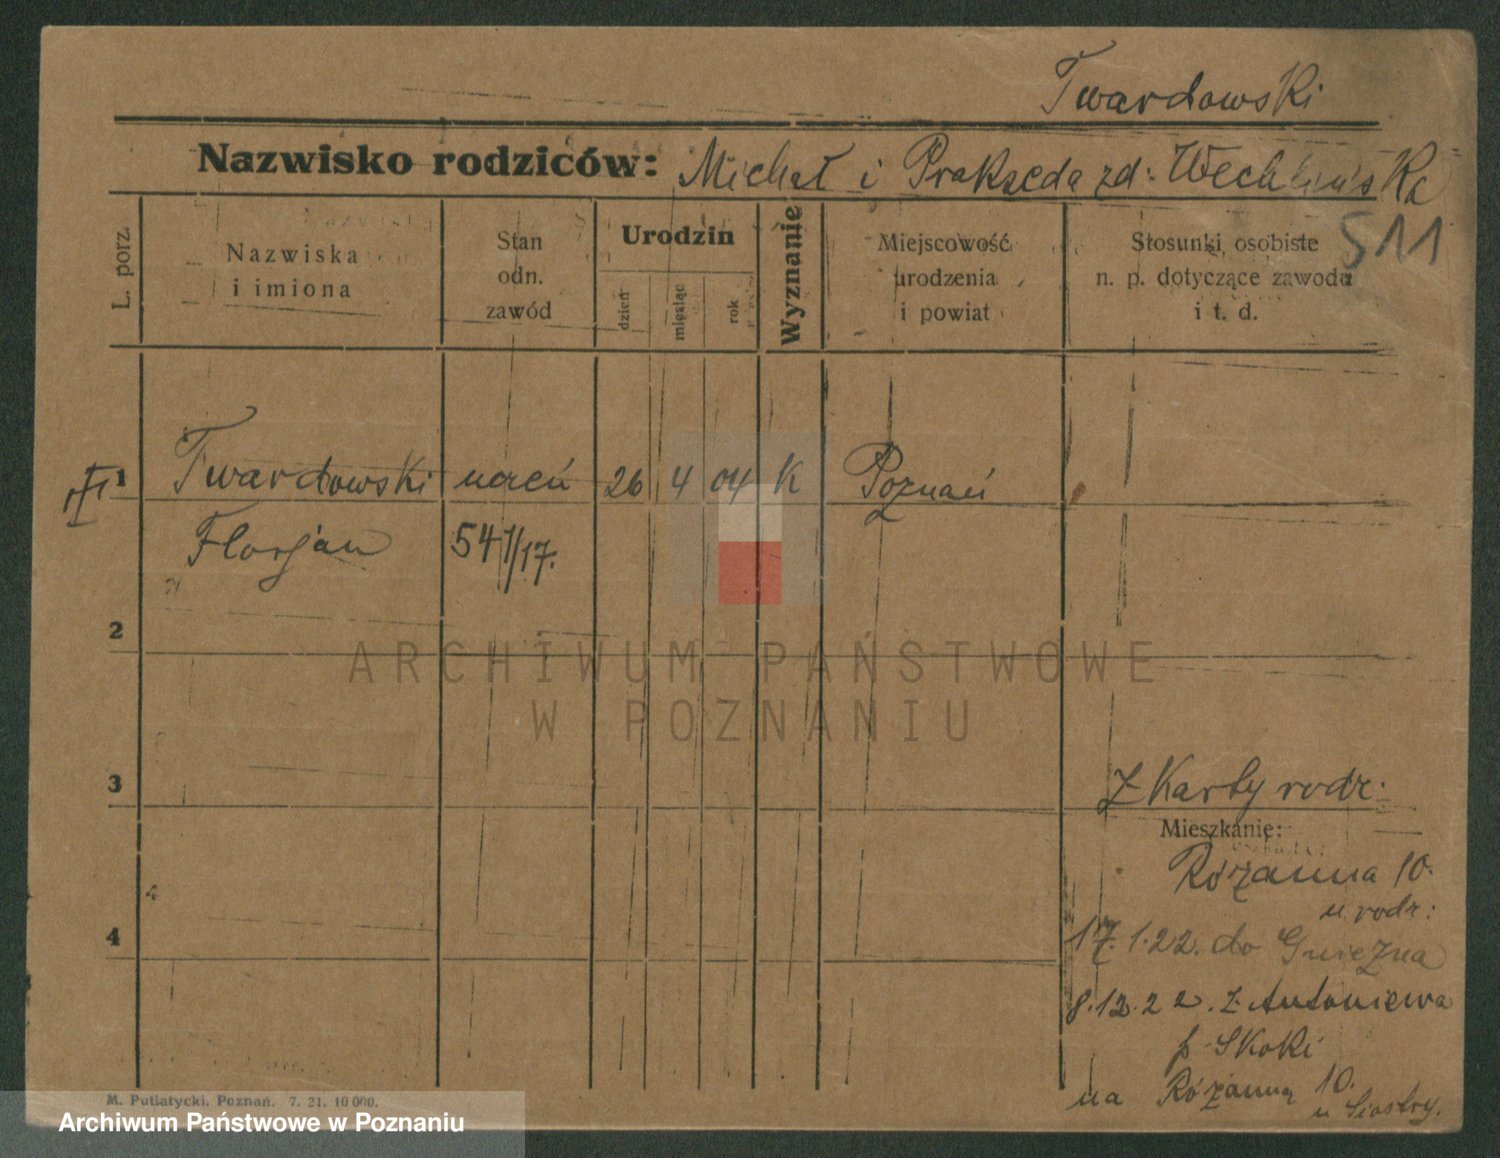 Twardowski
Nazwisko rodziców: Michał i Prakseda zd: Wechlińska
511
L. porz.
Nazwiska
i imiona
Stan
odn.
zawód
Urodzin
dzień
miesiąc
rok
Wyznanie
Miejscowość
urodzenia
i powiat
Stosunki osobiste
n. p. dotyczące zawodu
i t. d.
1 Twardowski uczeń 26 4 04 K Poznań
Florjan 541/17.
2
3
Z Karty rodz.
Mieszkanie:
Różanna 10.
u rodz:
4
17.1.22. do Gniezna
8.12.22. z Antoniewa
p Skoki
na Różanną 10.
u Siostry.
M. Putiatycki, Poznań. 7. 21. 10 000.
ARCHIWUM PAŃSTWOWE
W POZNANIU
Archiwum Państwowe w Poznaniu